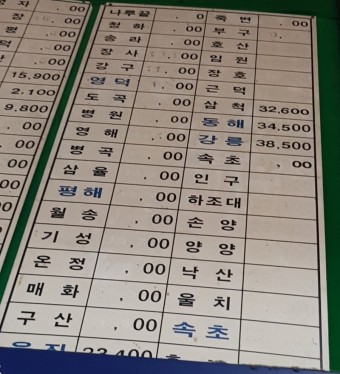 나루끝 0 죽변 . 00
천하 . 00 부구
송라 . 00 호산
장사 . 00 임원
강구 . 00 장호
영덕 . 00 근덕
도곡 . 00 삼척 32,600
병원 . 00 동해 34,500
영해 . 00 강릉 38,500
병곡 . 00 속초 , 00
삼율 . 00 인구
평해 . 00 하조대
월송 . 00 손양
기성 . 00 양양
온정 , 00 낙산
매화 , 00 물치
구산 , 00 속초
울진 23,400
15,900
2,100
9,800
. 00
. 00
. 00
. 00